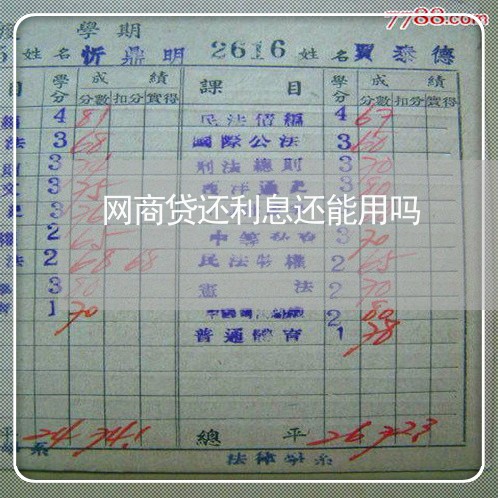 7788.com
學期
姓名 忻鼎明 2616 姓名 賈泰德
目 學分 成績 課目 學分 成績
分數 扣分 實得 分數 扣分 實得
4 81 民法債編 4 67
法 3 68 國際公法 3 60
3 刑法總則 3 70
文 3 75 西洋通史 3 80
网商贷还利息还能用吗
2 65 3 70
法 2 68 68 民法物權 2 65
3 80 憲法 2 70
1 70 2 80
普通體育 1 78
平 24 74.1 總平 26 72.3
系 法律學系